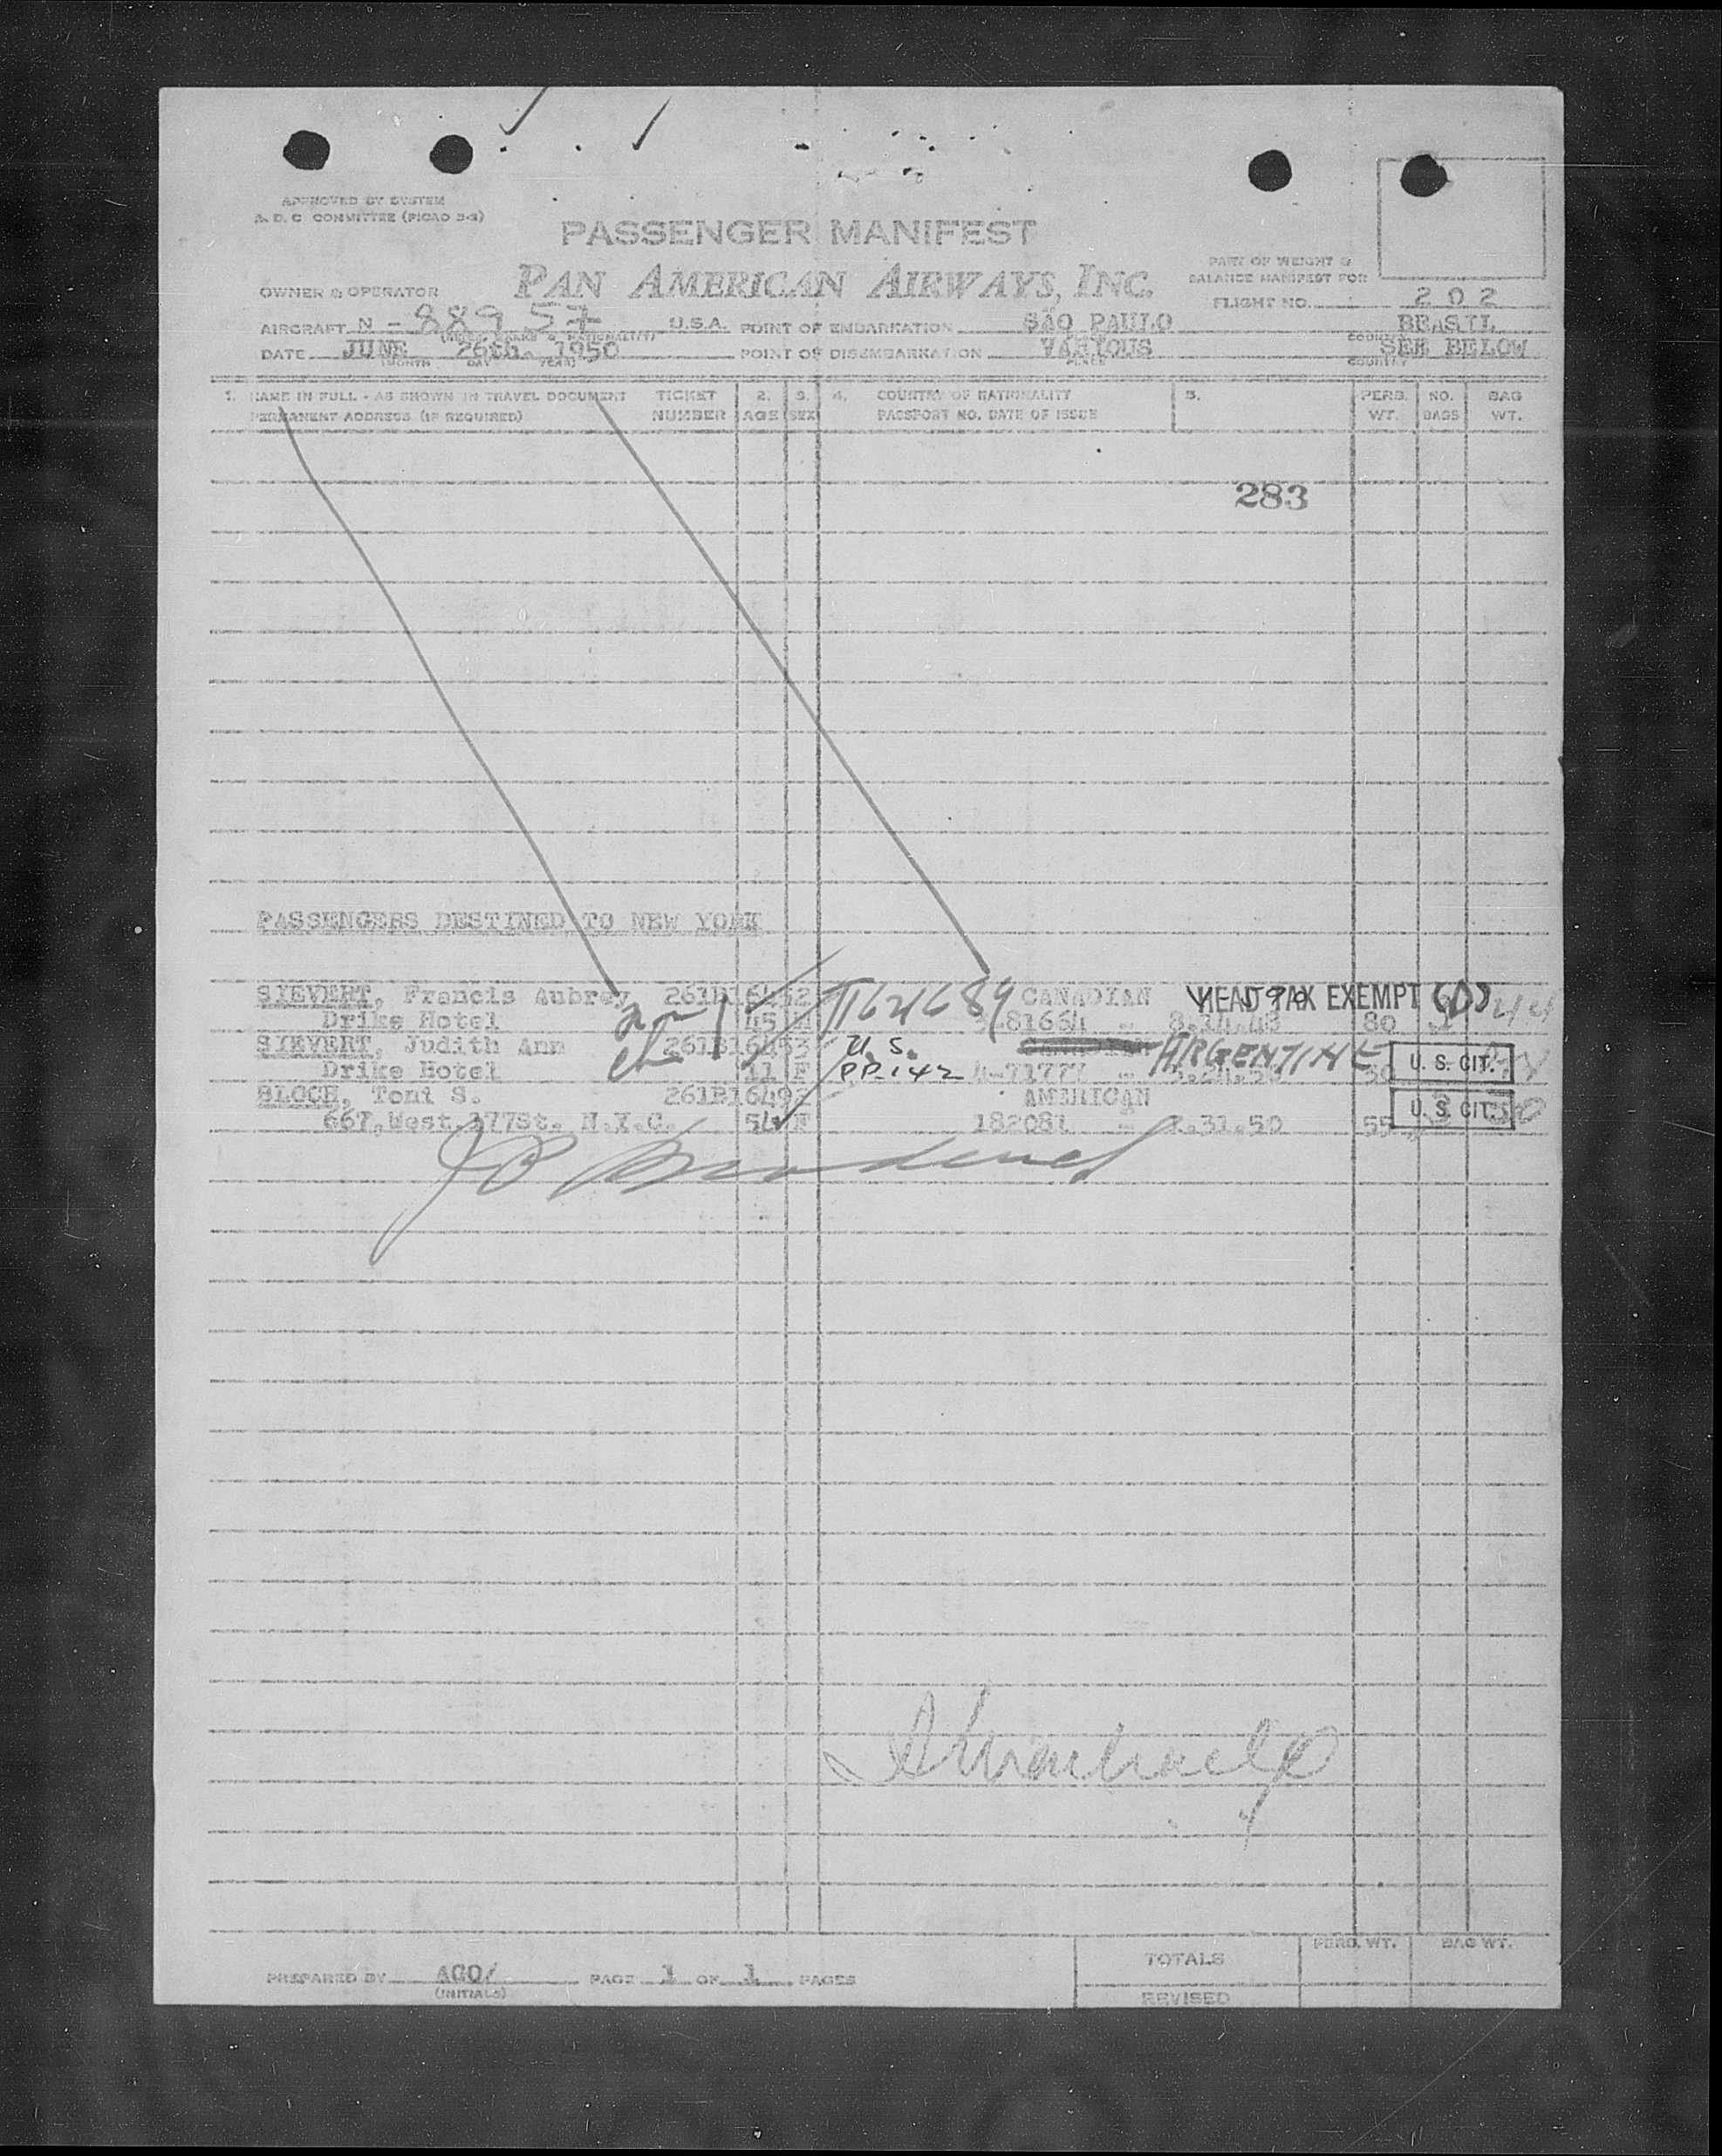 APPROVED BY SYSTEM
A. D. C. COMMITTEE (PICAO 2-3)
PASSENGER MANIFEST
PART OF WEIGHT &
BALANCE MANIFEST FOR
OWNER & OPERATOR PAN AMERICAN AIRWAYS, INC.
FLIGHT NO. 202
AIRCRAFT N - 88957 U.S.A. POINT OF EMBARKATION SÃO PAULO BRASIL
DATE JUNE 26th. 1950 POINT OF DISEMBARKATION VARIOUS SEE BELOW
(MONTH DAY YEAR) PLACE COUNTRY
1. NAME IN FULL - AS SHOWN IN TRAVEL DOCUMENT TICKET 2. 3. 4. COUNTRY OF NATIONALITY 5. PERS. NO. BAG
PERMANENT ADDRESS (IF REQUIRED) NUMBER AGE SEX PASSPORT NO. DATE OF ISSUE WT. BAGS WT.
283
PASSENGERS DESTINED TO NEW YORK
SIEVERT, Francis Aubrey 261B16452 1621689 CANADIAN HEAD TAX EXEMPT
Drike Hotel 45 M 80
SIEVERT, Judith Ann 261B16453 U. S. ARGENTINE
Drike Hotel 11 F PP-142 4-71777 U. S. CIT.
BLOCH, Toni S. 261B16492 AMERICAN
667, West. 177St. N.Y.C. 54 F 182081 - .31.50 55 U. S. CIT.
PREPARED BY AGO/ PAGE 1 OF 1 PAGES
(INITIALS)
TOTALS PERS. WT. BAG WT.
REVISED